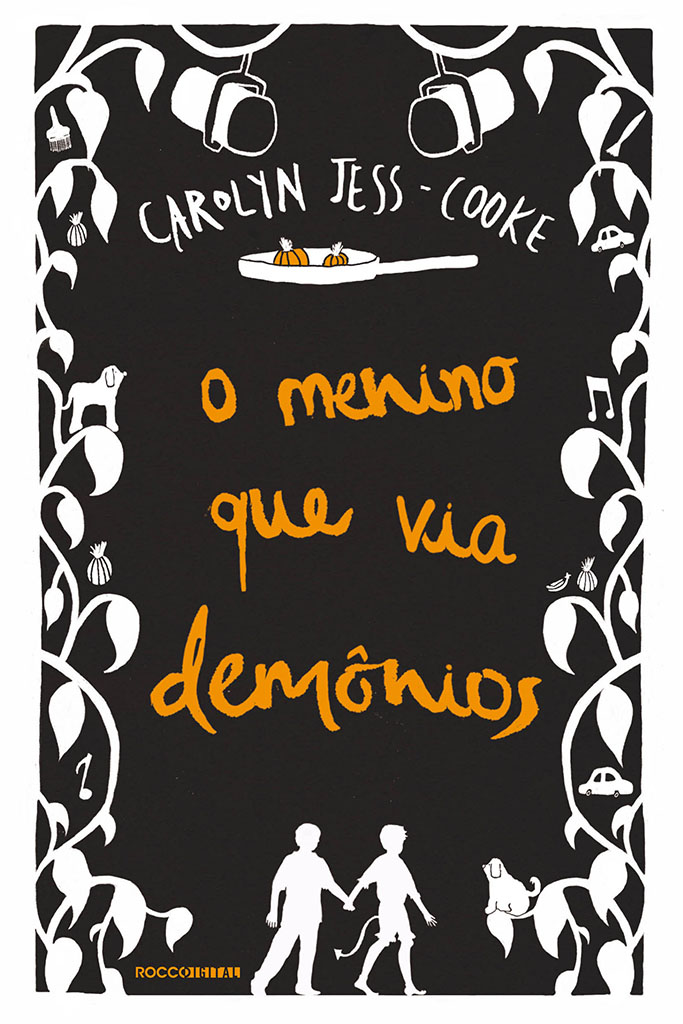 CAROLYN JESS-COOKE
o menino
que via
demônios
ROCCODIGITAL